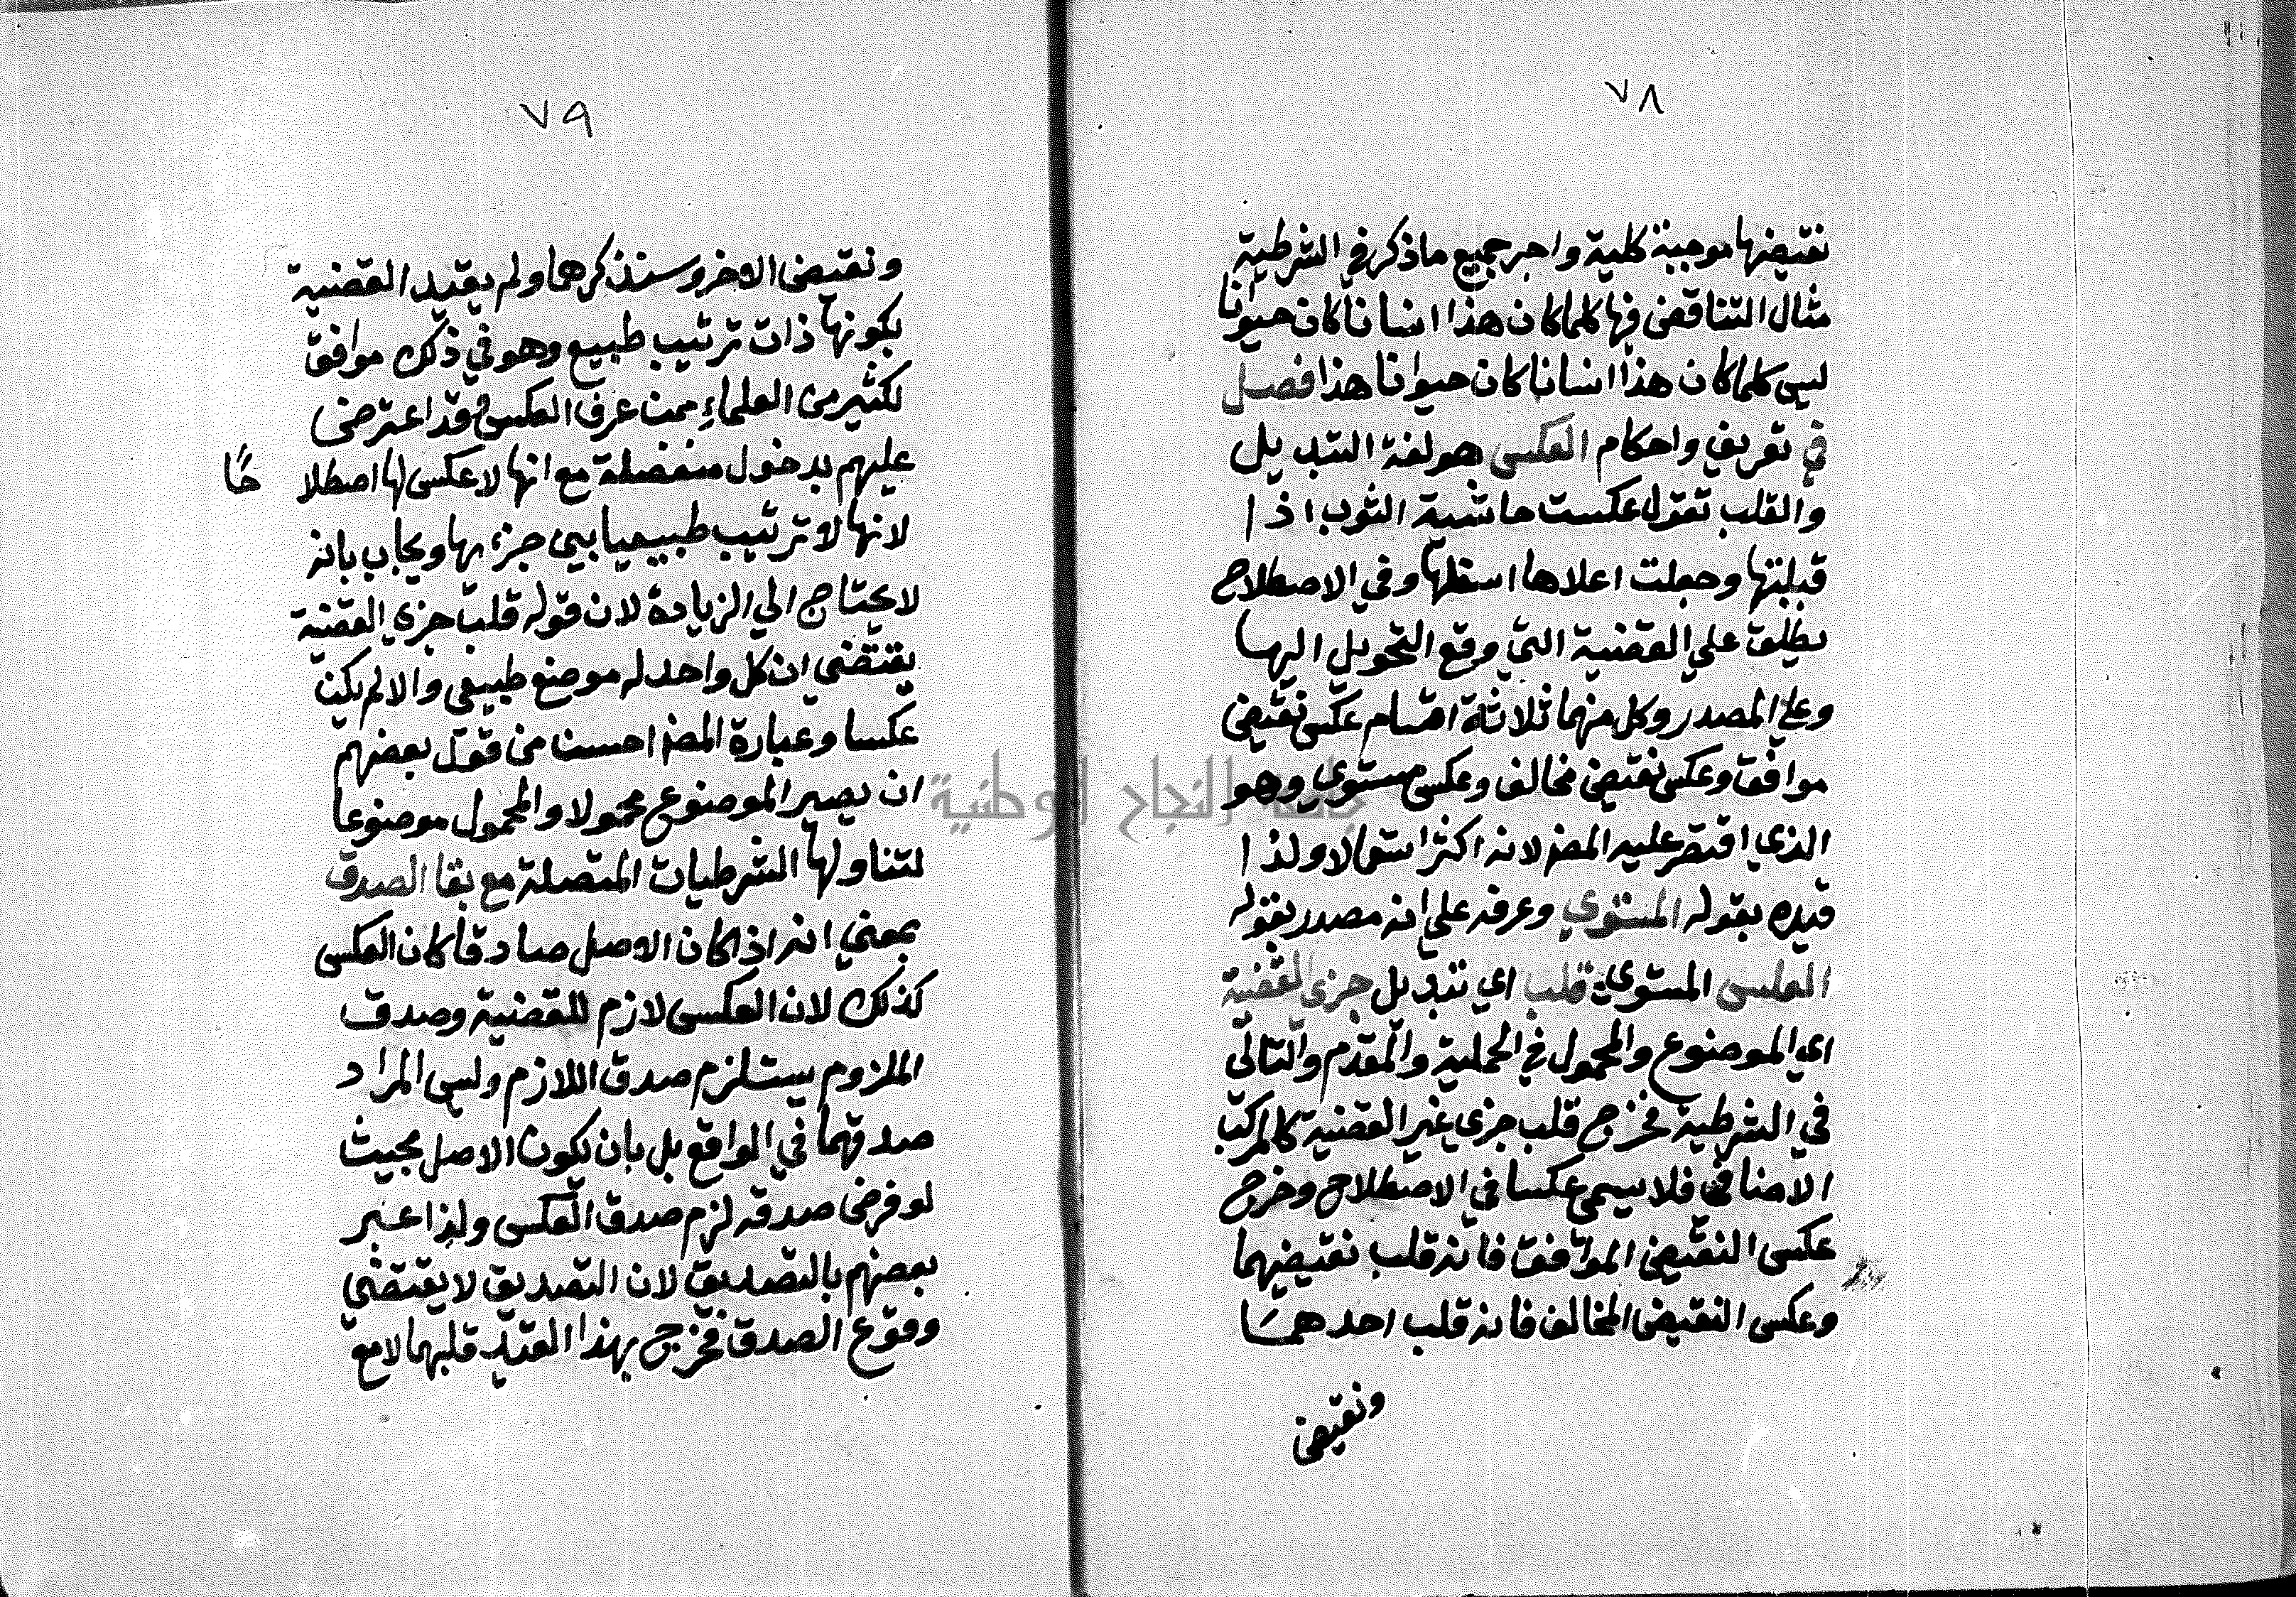 ٧٨
نقيضها موجبة كلية واجر جميع ما ذكر في الشرطية
مثال التناقض فيها كلما كان هذا انسانا كان حيوانا
ليس كلما كان هذا انسانا كان حيوانا هذا فصل
في تعريف واحكام العكس هو لغة التبديل
والقلب تقول عكست حاشية الثوب اذا
قبلتها وجعلت اعلاها اسفلها وفي الاصطلاح
يطلق علي القضية التي وقع التحويل اليها
وعلي المصدر وكل منهما ثلاثة اقسام عكس نقيض
موافق وعكس نقيض مخالف وعكس مستوي وهو
الذي اقتصر عليه المصز لانه اكثر استعمالا ولذا
قيده بقوله المستوي وعرفه علي انه مصدر بقوله
العكس المستوي قلب اي تبديل جزي القضية
اي الموضوع والمحمول في الحملية والمقدم والتالي
في الشرطية فخرج قلب جزي غير القضية كالمركب
الاضافي فلا يسمي عكسا في الاصطلاح وخرج
عكس النقيض الموافق فانه قلب نقيضيهما
وعكس النقيض المخالف فانه قلب احدهما
ونقيض
٧٩
ونقيض الاخر وسنذكرهما ولم يقيد القضية
بكونها ذات ترتيب طبيع وهو في ذلك موافق
لكثير من العلماء ممن عرف العكس فقد اعترض
عليهم بدخول منفصلة مع انها لا عكس لها اصطلاحًا
لانها لا ترتيب طبيعيا بين جزءيها ويجاب بانه
لا يحتاج الي الزيادة لان قوله قلب جزي القضية
يقتضي ان كل واحد له موضع طبيعي والا لم يكن
عكسا وعبارة المصز احسن من قول بعضهم
ان يصير الموضوع محمولا والمحمول موضوعا
لتناولها الشرطيات المتصلة مع بقا الصدق
بمعني انه اذا كان الاصل صادقا كان العكس
كذلك لان العكس لازم للقضية وصدق
الملزوم يستلزم صدق اللازم وليس المراد
صدقهما في الواقع بل بان يكون الاصل بحيث
لو فرض صدقه لزم صدق العكس ولذا عبر
بعضهم بالتصديق لان التصديق لا يقتضي
وقوع الصدق فخرج بهذا القيد قلبهما لا مع
جامعة النجاح الوطنية